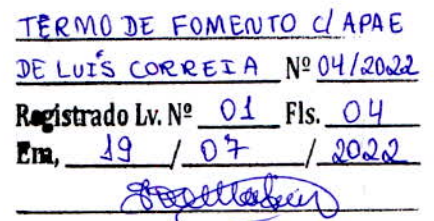 TERMO DE FOMENTO C/ APAE
DE LUÍS CORREIA Nº 04/2022
Registrado Lv. Nº 01 Fls. 04
Em, 19 / 07 / 2022